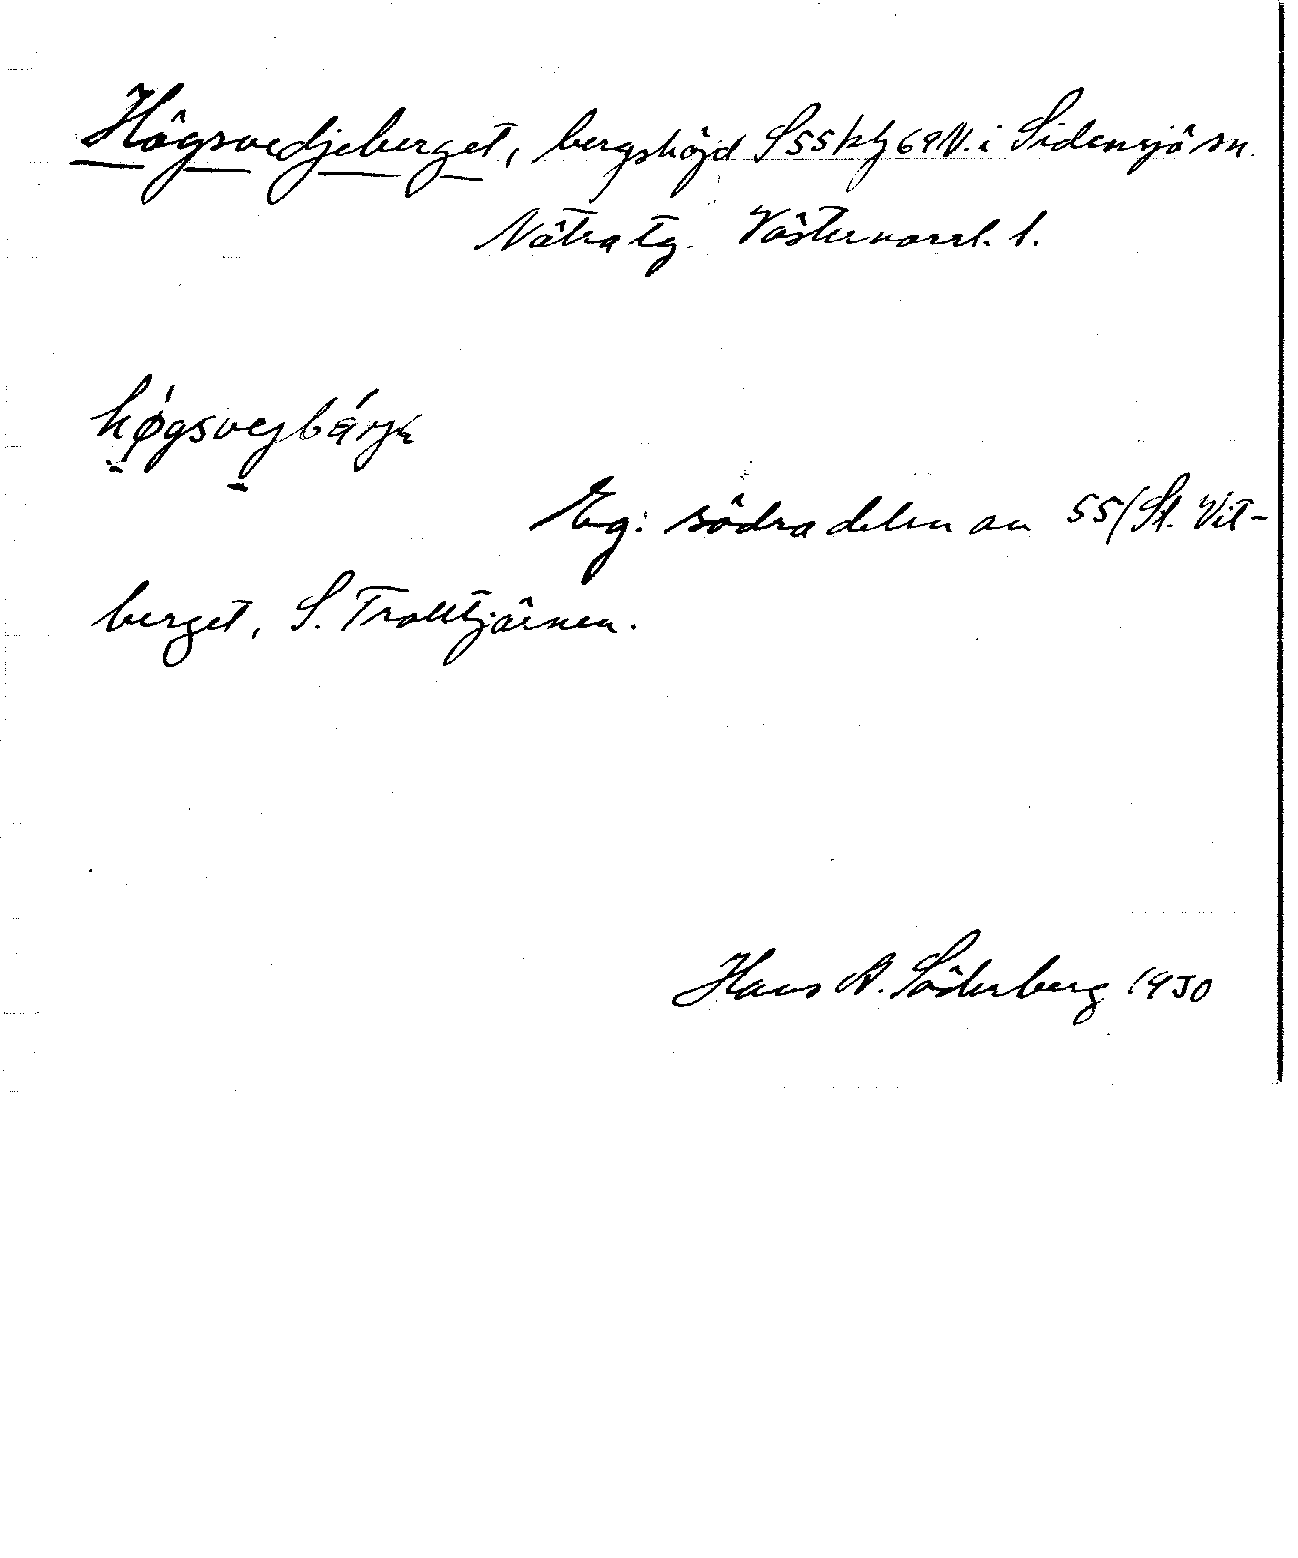 Högsvedjeberget, bergshöjd S55 69V. i Sidensjö sn.
Nätra tg. Västernorrl. l.
høgsvejbárjə
Eg: södra delen av 55/St. Vit-
berget, S. Trolltjärnen.
Hans A. Söderberg 1930